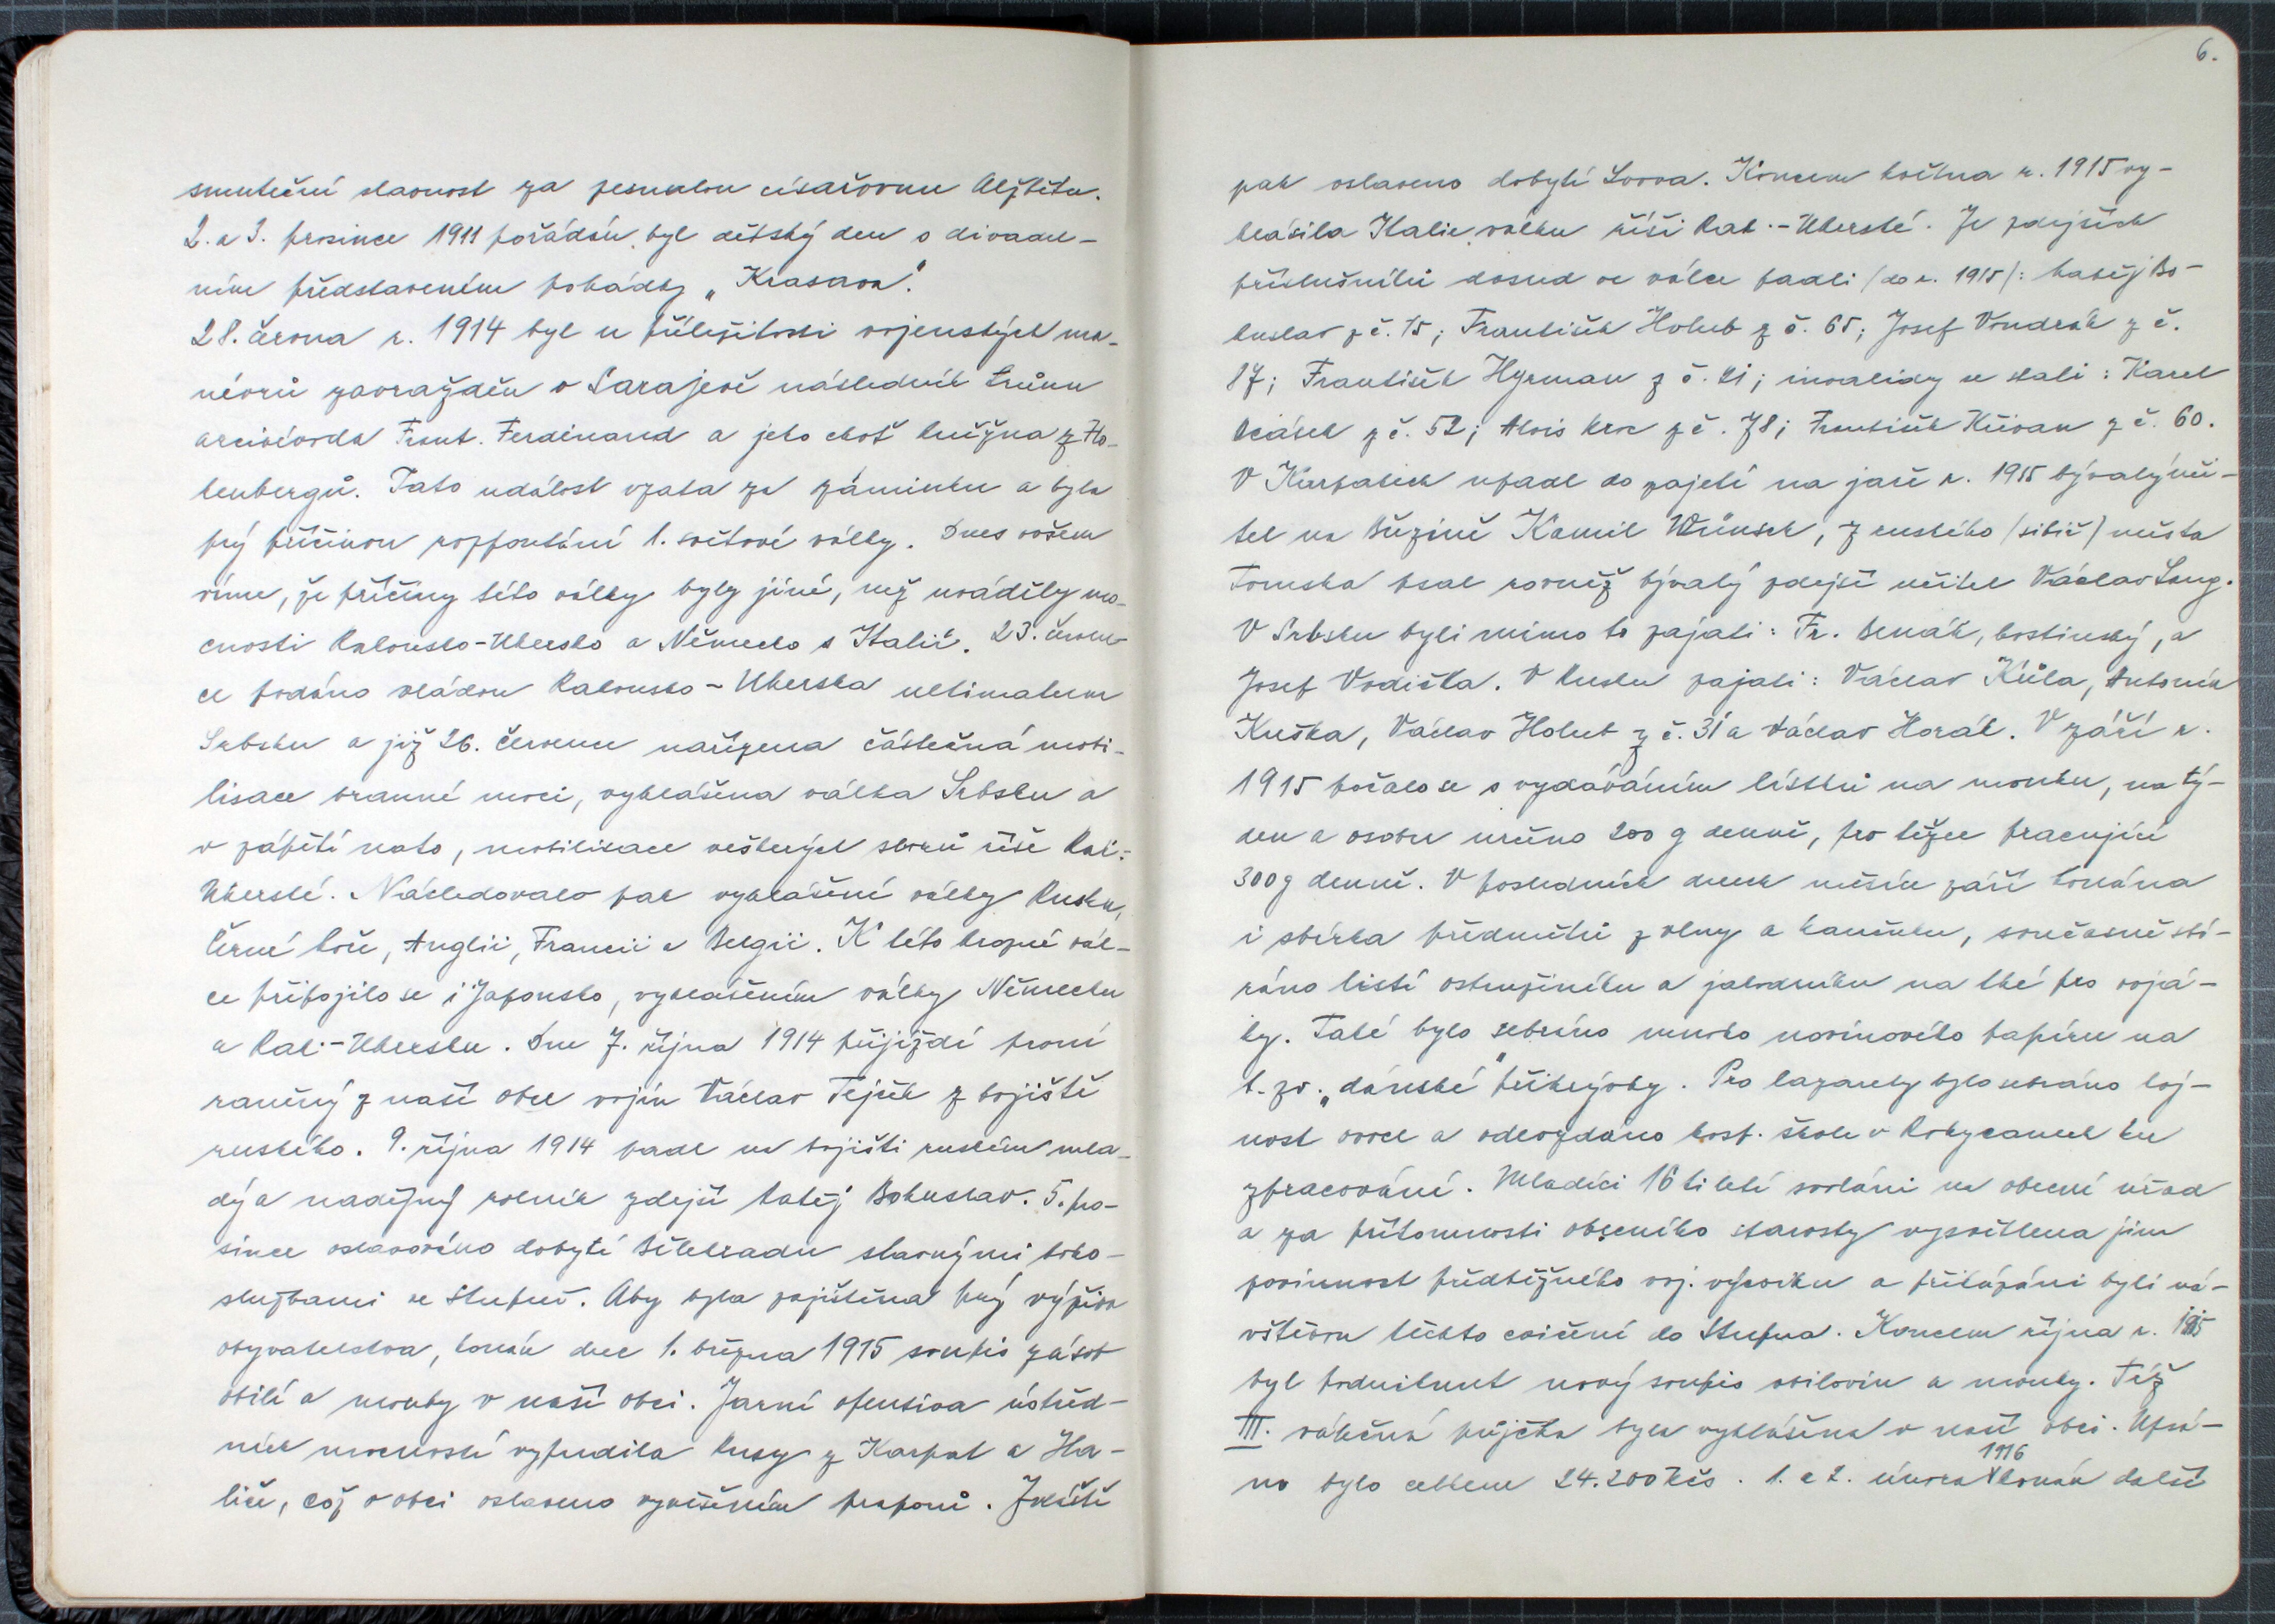 smuteční slavnost za zesnulou císařovnu Alžbětu.
2. a 3. prosince 1911 pořádán byl dětský den s divadel-
ním představením pohádky „Krasava".
28. června r. 1914 byl u příležitosti vojenských ma-
névrů zavražděn v Sarajevě následník trůnu
arcivévoda Frant. Ferdinand a jeho choť kněžna z Ho-
henbergů. Tato událost vzata za záminku a byla
prý příčinou rozpoutání 1. světové války. Dnes ovšem
víme, že příčiny této války byly jiné, než uváděly mo-
cnosti Rakousko-Uhersko a Německo s Italií. 23. červen-
ce podáno vládou Rakousko-Uherska ultimatum
Srbsku a již 26. července nařízena částečná mobi-
lisace branné moci, vyhlášena válka Srbsku a
v zápětí nato, mobilisace veškerých sborů říše Rak.-
Uherské. Následovalo pak vyhlášení války Rusku,
Černé hoře, Anglii, Francii a Belgii. K této hrozné vál-
ce připojilo se i Japonsko, vyhlášením války Německu
a Rak.-Uhersku. Dne 7. října 1914 přijíždí první
raněný z naší obce vojín Václav Tejček z bojiště
ruského. 9. října 1914 padl na bojišti ruském mla-
dý a nadějný rolník zdejší Matěj Bohuslav. 5. pro-
since oslavováno dobytí Bělehradu slavnými boho-
službami ve Stupně. Aby byla zajištěna prý výživa
obyvatelstva, konán dne 1. března 1915 soupis zásob
obilí a mouky v naší obci. Jarní ofensiva ústřed-
ních mocností vypudila Rusy z Karpat a Ha-
liče, což v obci oslaveno vyvěšením praporů. Zvláště
6.
pak oslaveno dobytí Lvova. Koncem května r. 1915 vy-
hlásila Italie válku říši Rak.-Uherské. Ze zdejších
příslušníků dosud ve válce padli (do r. 1915): Matěj Bo-
huslav z č. 15; František Holub z č. 65; Josef Vondrák z č.
87; František Hyrman z č. 41; invalidy se stali: Karel
z č. 52; Alois z č. 78; František Křivan z č. 60.
V Karpatech upadl do zajetí na jaře r. 1915 bývalý uči-
tel na Březině Kamil Wünsch, z ruského (sibiř) města
Tomska psal rovněž bývalý zdejší učitel Václav Lang.
V Srbsku byli mimo to zajati: Fr. Benák, hostinský, a
Josef Vodička. V Rusku zajati: Václav Kůla, Antonín
Kuška, Václav Holub z č. 31 a Václav Horák. V září r.
1915 počalo se s vydáváním lístků na mouku, na tý-
den a osobu určeno 200 g denně, pro těžce pracující
300 g denně. V posledních dnech měsíce září konána
i sbírka předmětů z vlny a kaučuku, současně sbí-
ráno listí ostružiníku a jahodníku na thé pro vojá-
ky. Také bylo sebráno mnoho novinového papíru na
t. zv. „dánské" přikrývky. Pro lazarety bylo sebráno hoj-
nost ovoce a odevzdáno hosp. škole v Rokycanech ku
zpracování. Mladíci 16 ti letí svoláni na obecní úřad
a za přítomnosti obecního starosty vysvětlena jim
povinnost předběžného voj. výcviku a přikázáni byli ná-
vštěvou těchto cvičení do Stupna. Koncem října r. 1915
byl podniknut nový soupis obilovin a mouky. Též
III. válečná půjčka byla vyhlášena v naší obci. Upsá-
no bylo celkem 24.200 Kčs. 1. a 2. února 1916 konán další